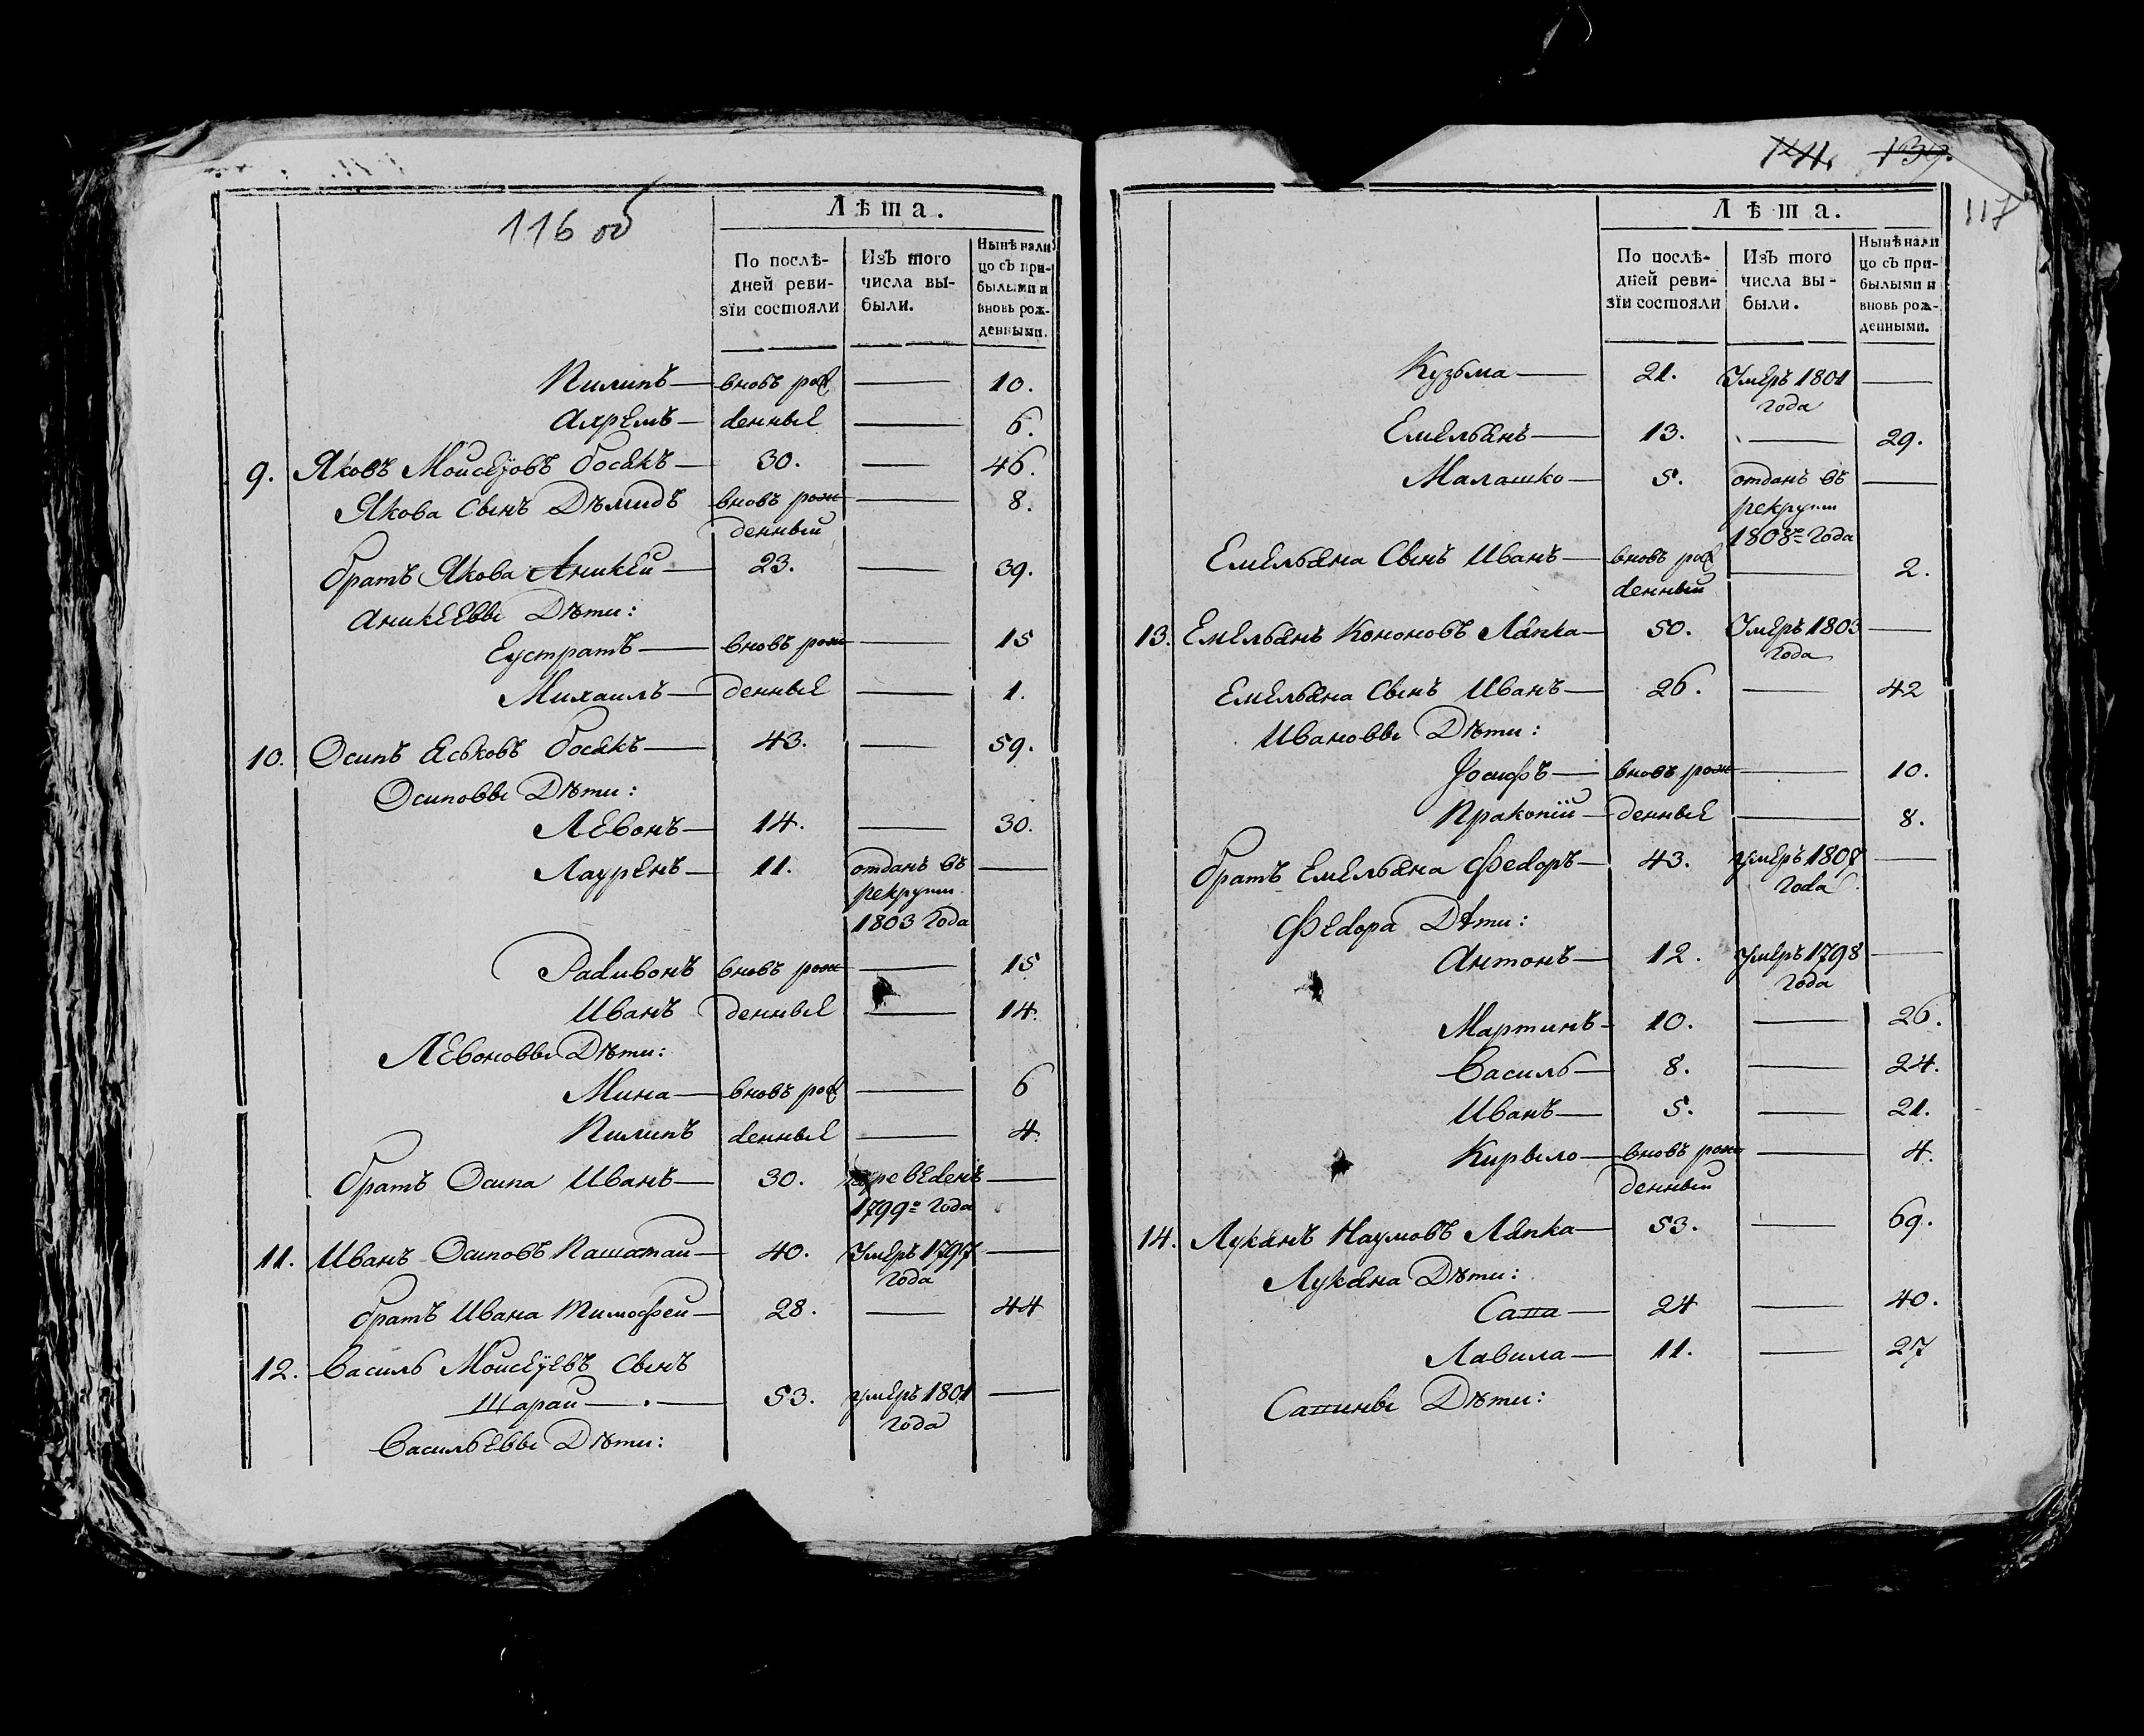 116 об
Лѣта.
По послѣ-
дней реви-
зїи состояли
Изъ того
числа вы-
были.
Нынѣ нали
цо съ при-
былыми и
вновь рож-
денными.
Пилипъ — вновь рож — 10.
Ахремъ — денные — 6.
9. Яковъ Моисеўовъ Босакъ — 30. — 46.
Якова сынъ Дѣмидъ вновь рож — 8.
денный
братъ Якова Аникеи — 23. — 39.
Аникеевы Дѣти:
Еустратъ — вновь рож — 15
Михаилъ — денные — 1.
10. Осипъ Еськовъ Босакъ — 43. — 59.
Осиповы Дѣти:
Левонъ — 14. — 30.
Лауренъ — 11. отданъ въ —
рекруты
1803 года
Радивонъ вновь рож — 15
Иванъ денные — 14.
Левоновы Дѣти:
Мина — вновь рож — 6
Пилипъ денные — 4.
братъ Осипа Иванъ — 30. переведенъ —
1799го года
11. Иванъ Осиповъ Пашатаи — 40. Умеръ 1797 —
года
братъ Ивана Тимофеи — 28. — 44
12. Василь Моисеўевъ сынъ
Шараи — . — 53. умеръ 1801 —
года
Васильевы Дѣти:
144. 139.
117
Лѣта.
По послѣ-
дней реви-
зїи состояли
Изъ того
числа вы-
были.
Нынѣ нали
цо съ при-
былыми и
вновь рож-
денными.
Кузьма — 21. Умеръ 1801 —
года
Емельянъ — 13. — 29.
Малашко — 5. отданъ въ —
рекруты
1808го года
Емельяна сынъ Иванъ — вновь рож — 2.
денный
13. Емельянъ Кононовъ Лапка — 50. Умеръ 1803 —
года
Емельяна сынъ Иванъ — 26. — 42
Ивановы Дѣти:
Іосифъ — вновь рож — 10.
Пракопій — денные — 8.
братъ Емельяна Федоръ — 43. умеръ 1807 —
года
Федора Дѣти:
Антонъ — 12. умеръ 1798 —
года
Мартинъ — 10. — 26.
Василь — 8. — 24.
Иванъ — 5. — 21.
Кирыло — вновь рож — 4.
денный
14. Луканъ Наумовъ Лапка — 53. — 69.
Лукана Дѣти:
Сапа — 24 — 40.
Лавила — 11. — 27
Сапины Дѣти: